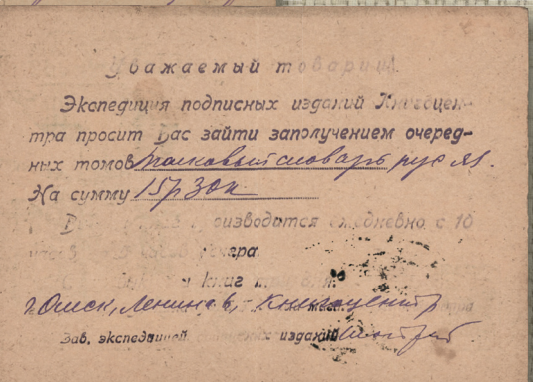 Уважаемый товарищ!
Экспедиция подписных изданий Книгоцен-
тра просит Вас зайти заполучением очеред-
ных томов Толковый словарь рус яз.
На сумму 15р 30к
производится ежедневно с 10
вечера
книг
г. Омск, Ленина 8, Книгоцентр
Зав. экспедицией изданий